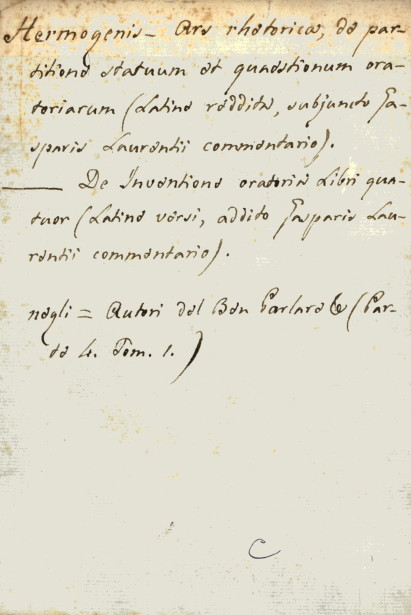 Hermogenis - Ars rhetorica, de par-
titione statuum et quaestionum ora-
toriarum (Latine reddita, subjuncto Ga-
sparis Laurentii commentario).
—— De Inventione oratoria Libri qua-
tuor (Latine versi, addito Gasparis Lau-
rentii commentario).
negli = Autori del Ben Parlare & (Par-
te 4. Tom. 1.)
C